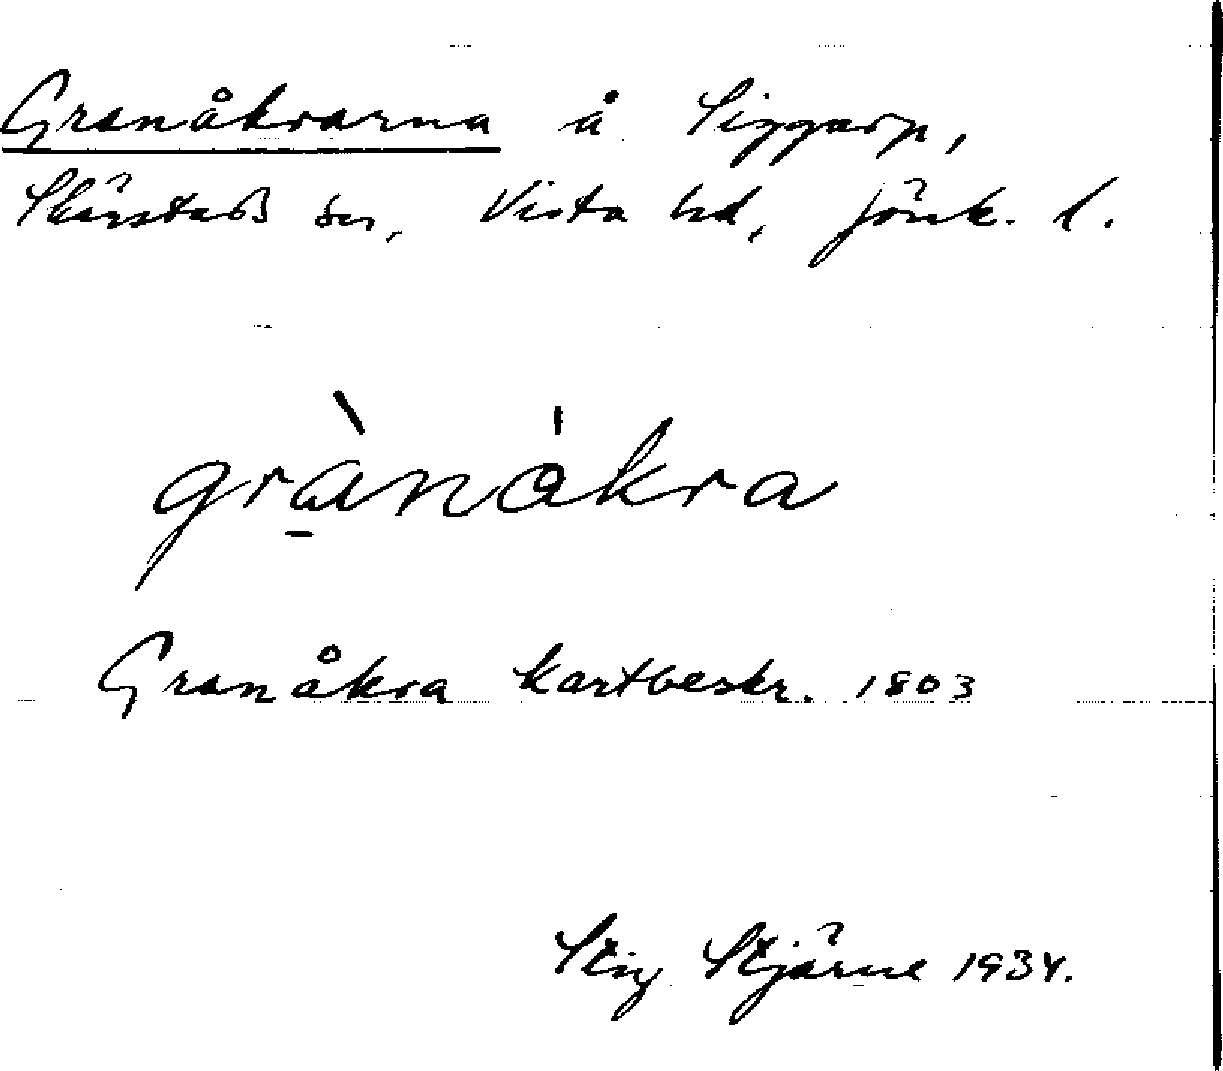 Granåkrarna å Siggarp,
Skärstads sn, Vista hd, Jönk. l.
grànåkra
Granåkra kartbeskr. 1803
Stig Stjärne 1934.